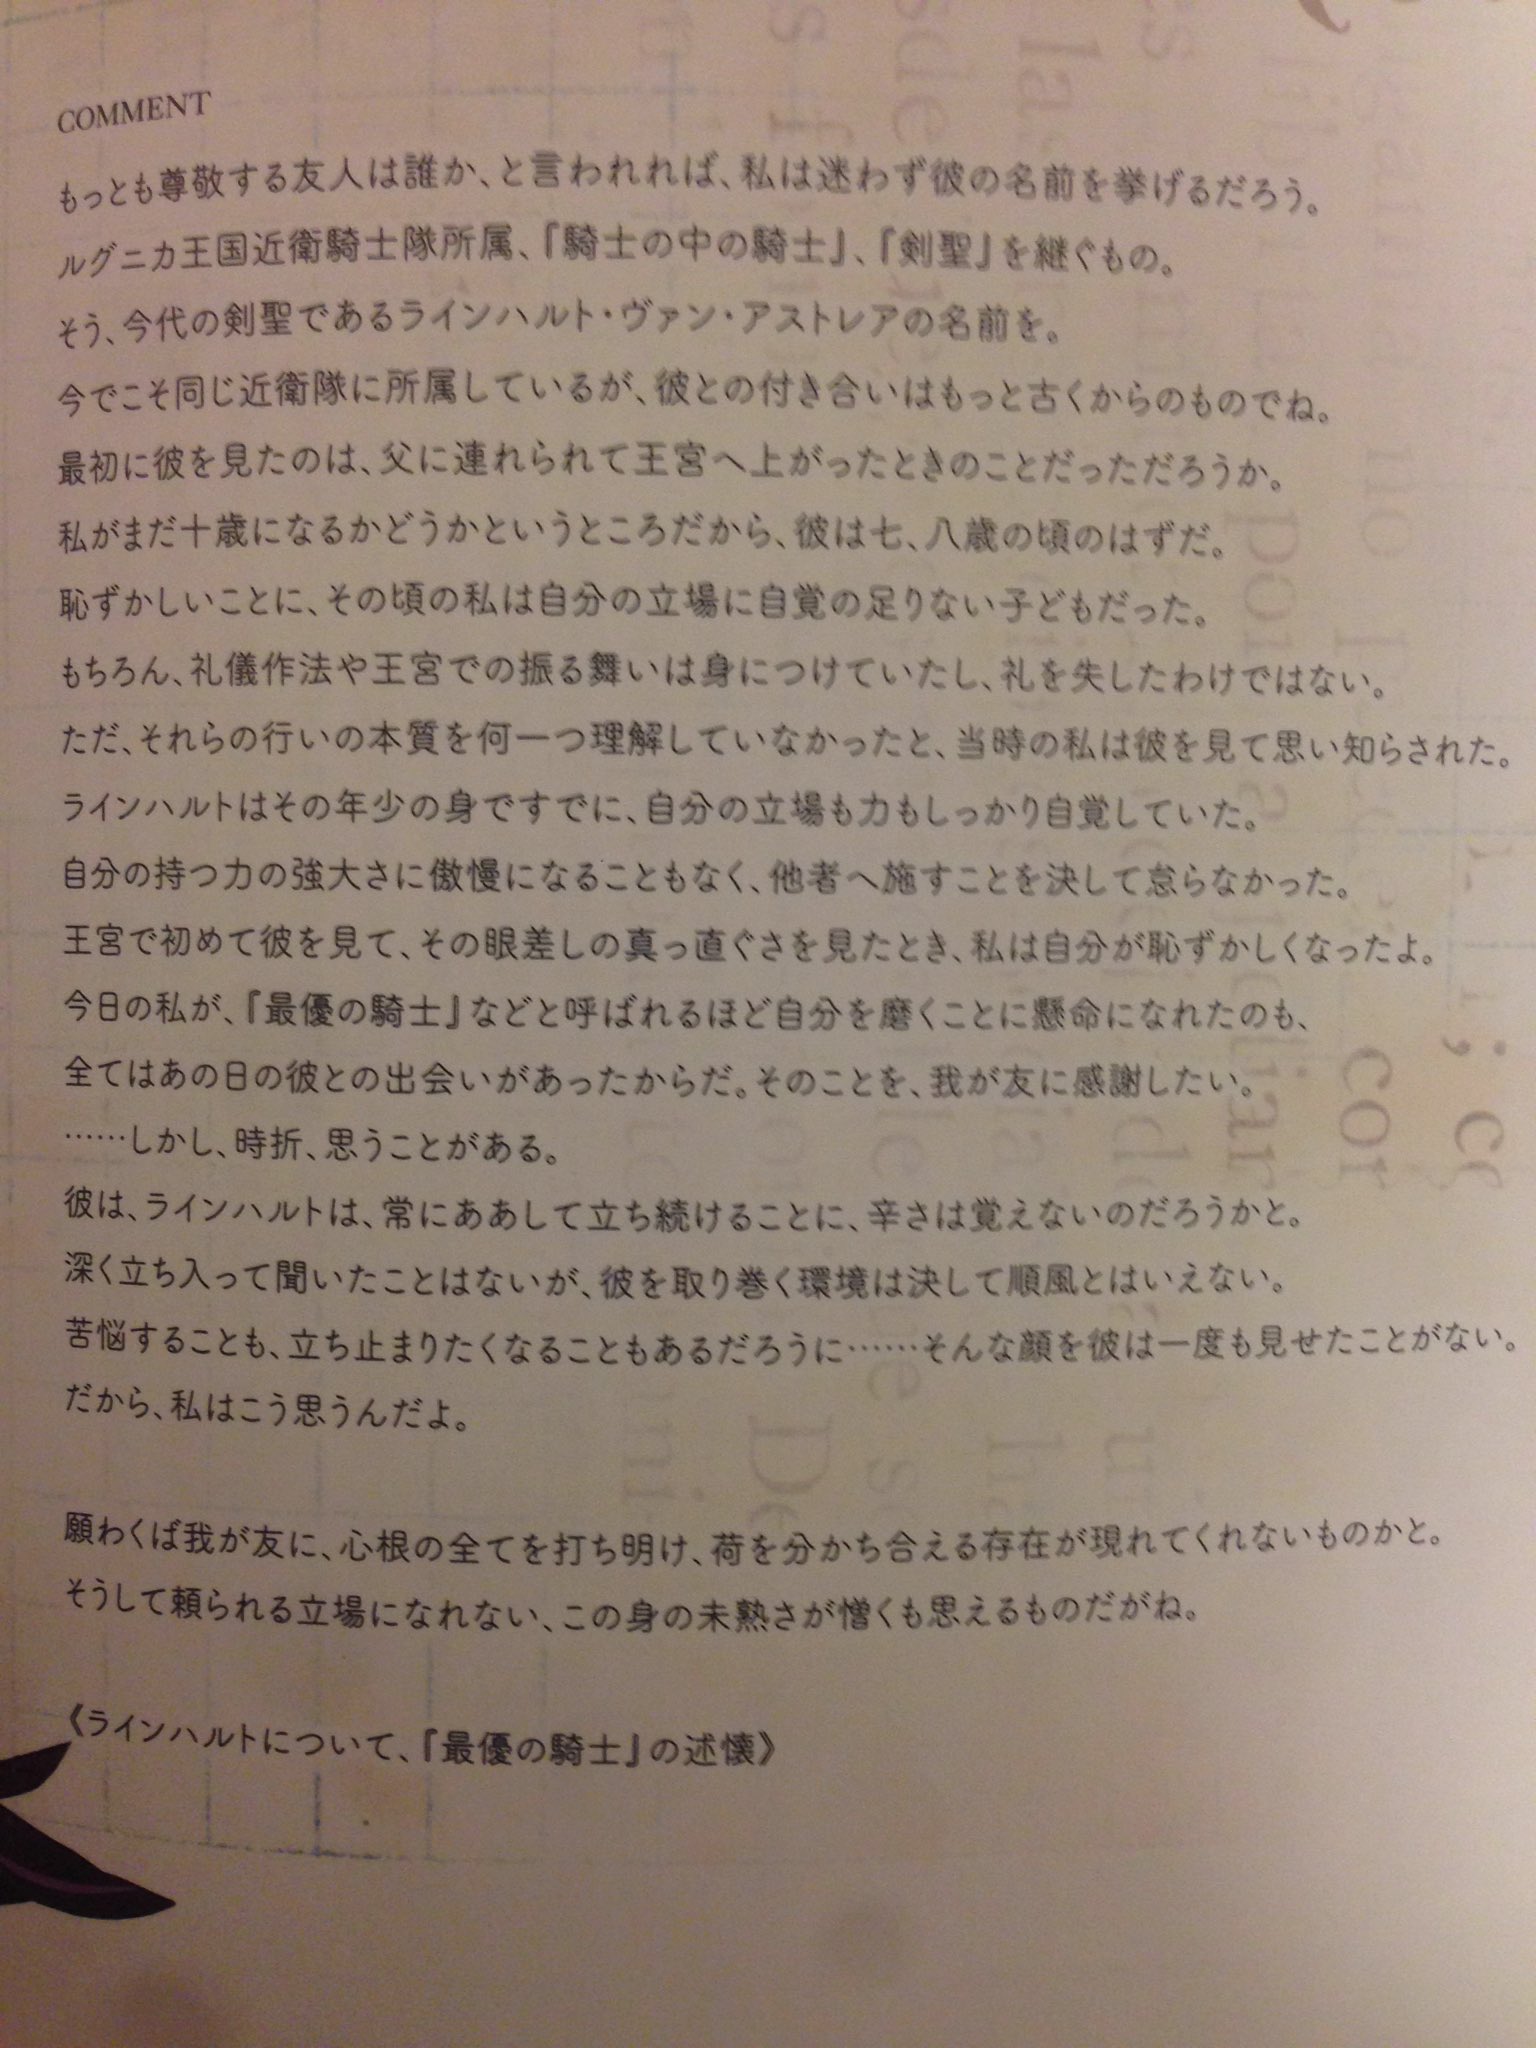 COMMENT
もっとも尊敬する友人は誰か、と言われれば、私は迷わず彼の名前を挙げるだろう。
ルグニカ王国近衛騎士隊所属、『騎士の中の騎士』、『剣聖』を継ぐもの。
そう、今代の剣聖であるラインハルト・ヴァン・アストレアの名前を。
今でこそ同じ近衛隊に所属しているが、彼との付き合いはもっと古くからのものでね。
最初に彼を見たのは、父に連れられて王宮へ上がったときのことだっただろうか。
私がまだ十歳になるかどうかというところだから、彼は七、八歳の頃のはずだ。
恥ずかしいことに、その頃の私は自分の立場に自覚の足りない子どもだった。
もちろん、礼儀作法や王宮での振る舞いは身につけていたし、礼を失したわけではない。
ただ、それらの行いの本質を何一つ理解していなかったと、当時の私は彼を見て思い知らされた。
ラインハルトはその年少の身ですでに、自分の立場も力もしっかり自覚していた。
自分の持つ力の強大さに傲慢になることもなく、他者へ施すことを決して怠らなかった。
王宮で初めて彼を見て、その眼差しの真っ直ぐさを見たとき、私は自分が恥ずかしくなったよ。
今日の私が、『最優の騎士』などと呼ばれるほど自分を磨くことに懸命になれたのも、
全てはあの日の彼との出会いがあったからだ。そのことを、我が友に感謝したい。
……しかし、時折、思うことがある。
彼は、ラインハルトは、常にああして立ち続けることに、辛さは覚えないのだろうかと。
深く立ち入って聞いたことはないが、彼を取り巻く環境は決して順風とはいえない。
苦悩することも、立ち止まりたくなることもあるだろうに……そんな顔を彼は一度も見せたことがない。
だから、私はこう思うんだよ。
願わくば我が友に、心根の全てを打ち明け、荷を分かち合える存在が現れてくれないものかと。
そうして頼られる立場になれない、この身の未熟さが憎くも思えるものだがね。
《ラインハルトについて、『最優の騎士』の述懐》